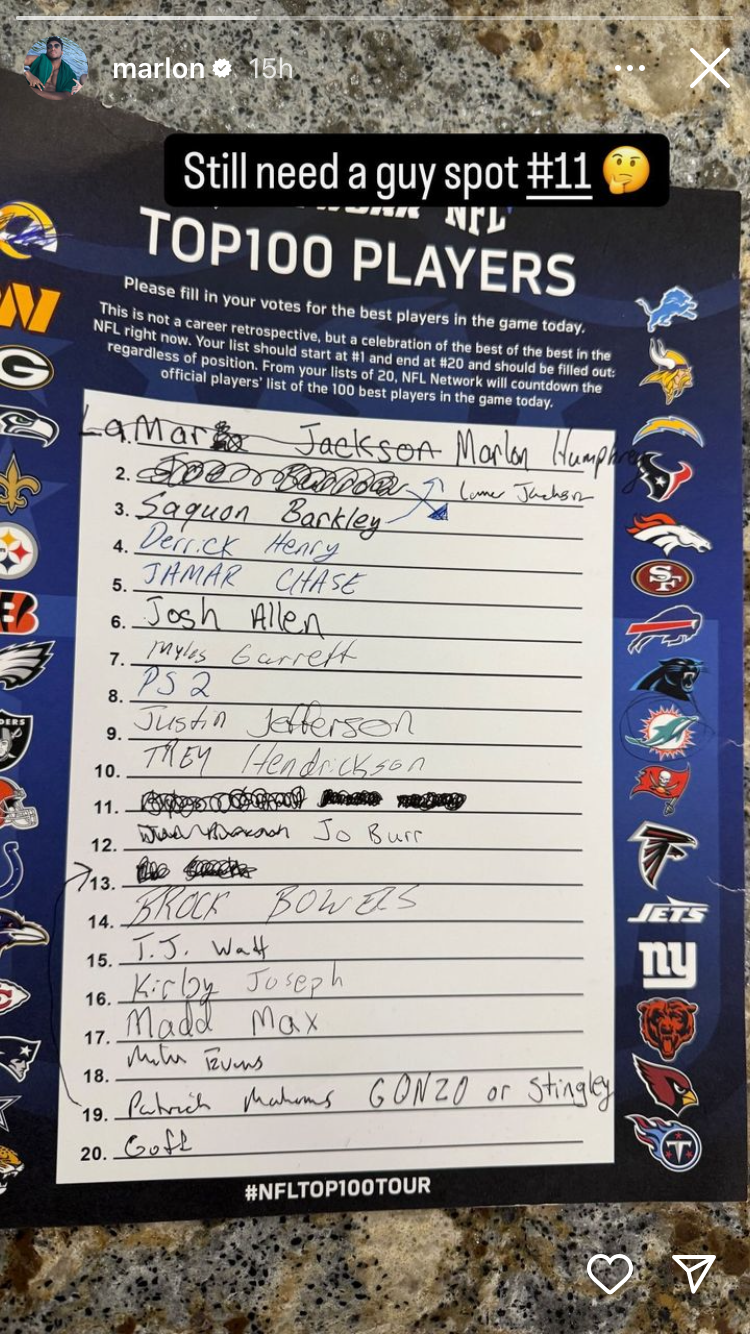 marlon 15h
Still need a guy spot #11 🤔
NFL
TOP100 PLAYERS
Please fill in your votes for the best players in the game today.
This is not a career retrospective, but a celebration of the best of the best in the
NFL right now. Your list should start at #1 and end at #20 and should be filled out:
regardless of position. From your lists of 20, NFL Network will countdown the
official players' list of the 100 best players in the game today.
LaMar Jackson Marlon Humphrey
2. Lamar Jackson
3. Saquon Barkley
4. Derrick Henry
5. JAMAR CHASE
6. Josh Allen
7. Myles Garrett
8. PS 2
9. Justin Jefferson
10. TREY Hendrickson
11.
12. Jo Burr
13.
14. BROCK BOWERS
15. T.J. Watt
16. Kirby Joseph
17. Madd Max
18. Mike Evans
19. Patrick Mahomes GONZO or Stingley
20. Goff
#NFLTOP100TOUR
G
SF
DERS
JETS
ny
T